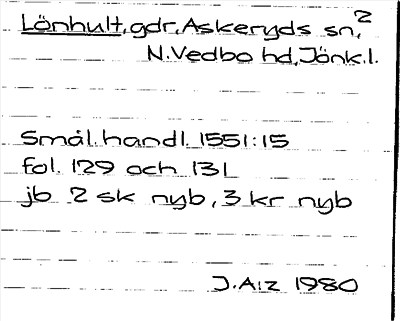 Lönhult, gdr, Askeryds sn, 2
N. Vedbo hd, Jönk. l.
Smål. handl. 1551:15
fol. 129 och 131
jb 2 sk nyb, 3 kr nyb
J.A:z 1980